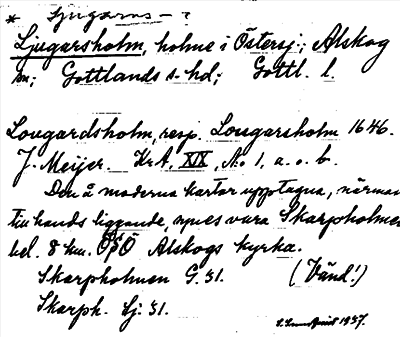 * Ljugarns - ?
Ljugarsholm, holme i Östersj.; Alskog
sn; Gottlands s. hd; Gottl. l.
Lougardsholm, resp. Lougarsholm 1646.
J. Meijer. KrA, XIX, No. 1, a. o. b.
Den å moderna kartor upptagna, närmast
till hands liggande, synes vara Skarpholmen
bel. 8 km. ÖSÖ Alskogs kyrka.
Skarpholmen G. 51.
(Vänd!)
Skarph. Sj. 51.
1937.